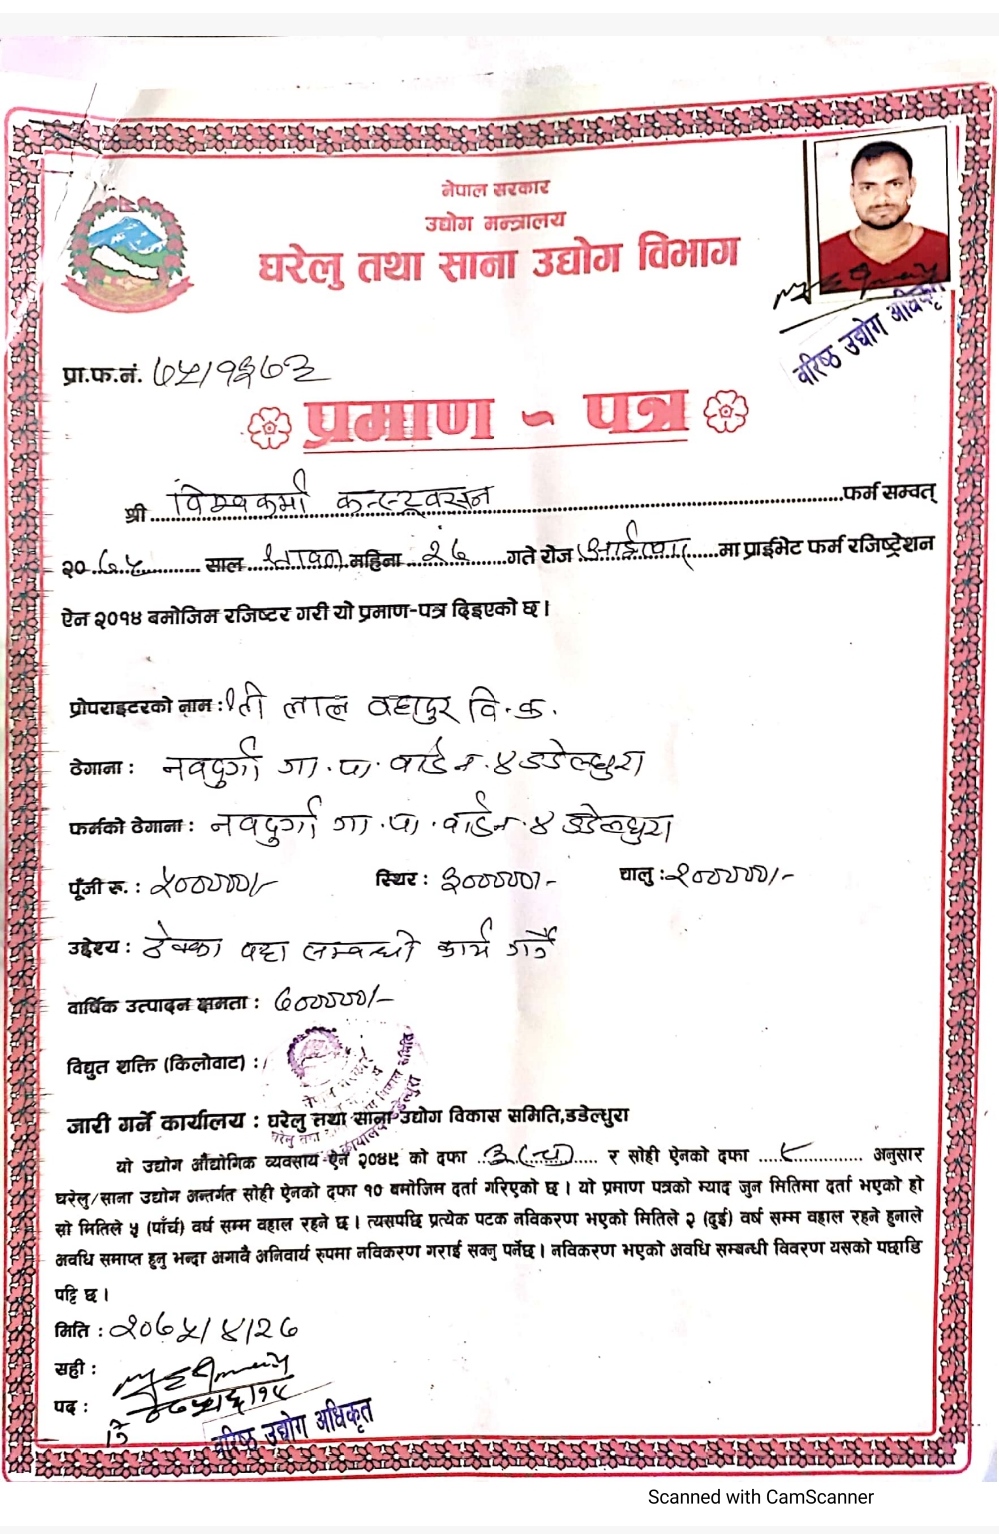 नेपाल सरकार
उद्योग मन्त्रालय
घरेलु तथा साना उद्योग विभाग
वरिष्ठ उद्योग अधिकृत
प्रा.फ.नं. ७५/१६७३
प्रमाण - पत्र
श्री विश्वकर्मा कन्स्ट्रक्सन फर्म सम्वत्
२० ७५ साल श्रावण महिना २७ गते रोज आईतवार मा प्राईभेट फर्म रजिष्ट्रेशन
ऐन २०१४ बमोजिम रजिष्टर गरी यो प्रमाण-पत्र दिइएको छ।
प्रोपराइटरको नाम : श्री लाल बहादुर वि.क.
ठेगाना : नवदुर्गा गा.पा. वार्ड न. ४ डडेल्धुरा
फर्मको ठेगाना : नवदुर्गा गा.पा. वार्ड न. ४ डडेल्धुरा
पूँजी रू. : ५०००००/- स्थिर : ३०००००/- चालु : २०००००/-
उद्देश्य : ठेक्का पट्टा सम्वन्धी कार्य गर्ने
वार्षिक उत्पादन क्षमता : ७०००००/-
विद्युत शक्ति (किलोवाट) :
जारी गर्ने कार्यालय : घरेलु तथा साना उद्योग विकास समिति,डडेल्धुरा
यो उद्योग औद्योगिक व्यवसाय ऐन २०४९ को दफा ३(च) र सोही ऐनको दफा ९ अनुसार
घरेलु/साना उद्योग अन्तर्गत सोही ऐनको दफा १० बमोजिम दर्ता गरिएको छ। यो प्रमाण पत्रको म्याद जुन मितिमा दर्ता भएको हो
सो मितिले ५ (पाँच) वर्ष सम्म वहाल रहने छ। त्यसपछि प्रत्येक पटक नविकरण भएको मितिले २ (दुई) वर्ष सम्म वहाल रहने हुनाले
अवधि समाप्त हुनु भन्दा अगावै अनिवार्य रुपमा नविकरण गराई सक्नु पर्नेछ। नविकरण भएको अवधि सम्बन्धी विवरण यसको पछाडि
पट्टि छ।
मिति : २०७५/४/२७
सही :
पद :
वरिष्ठ उद्योग अधिकृत
Scanned with CamScanner